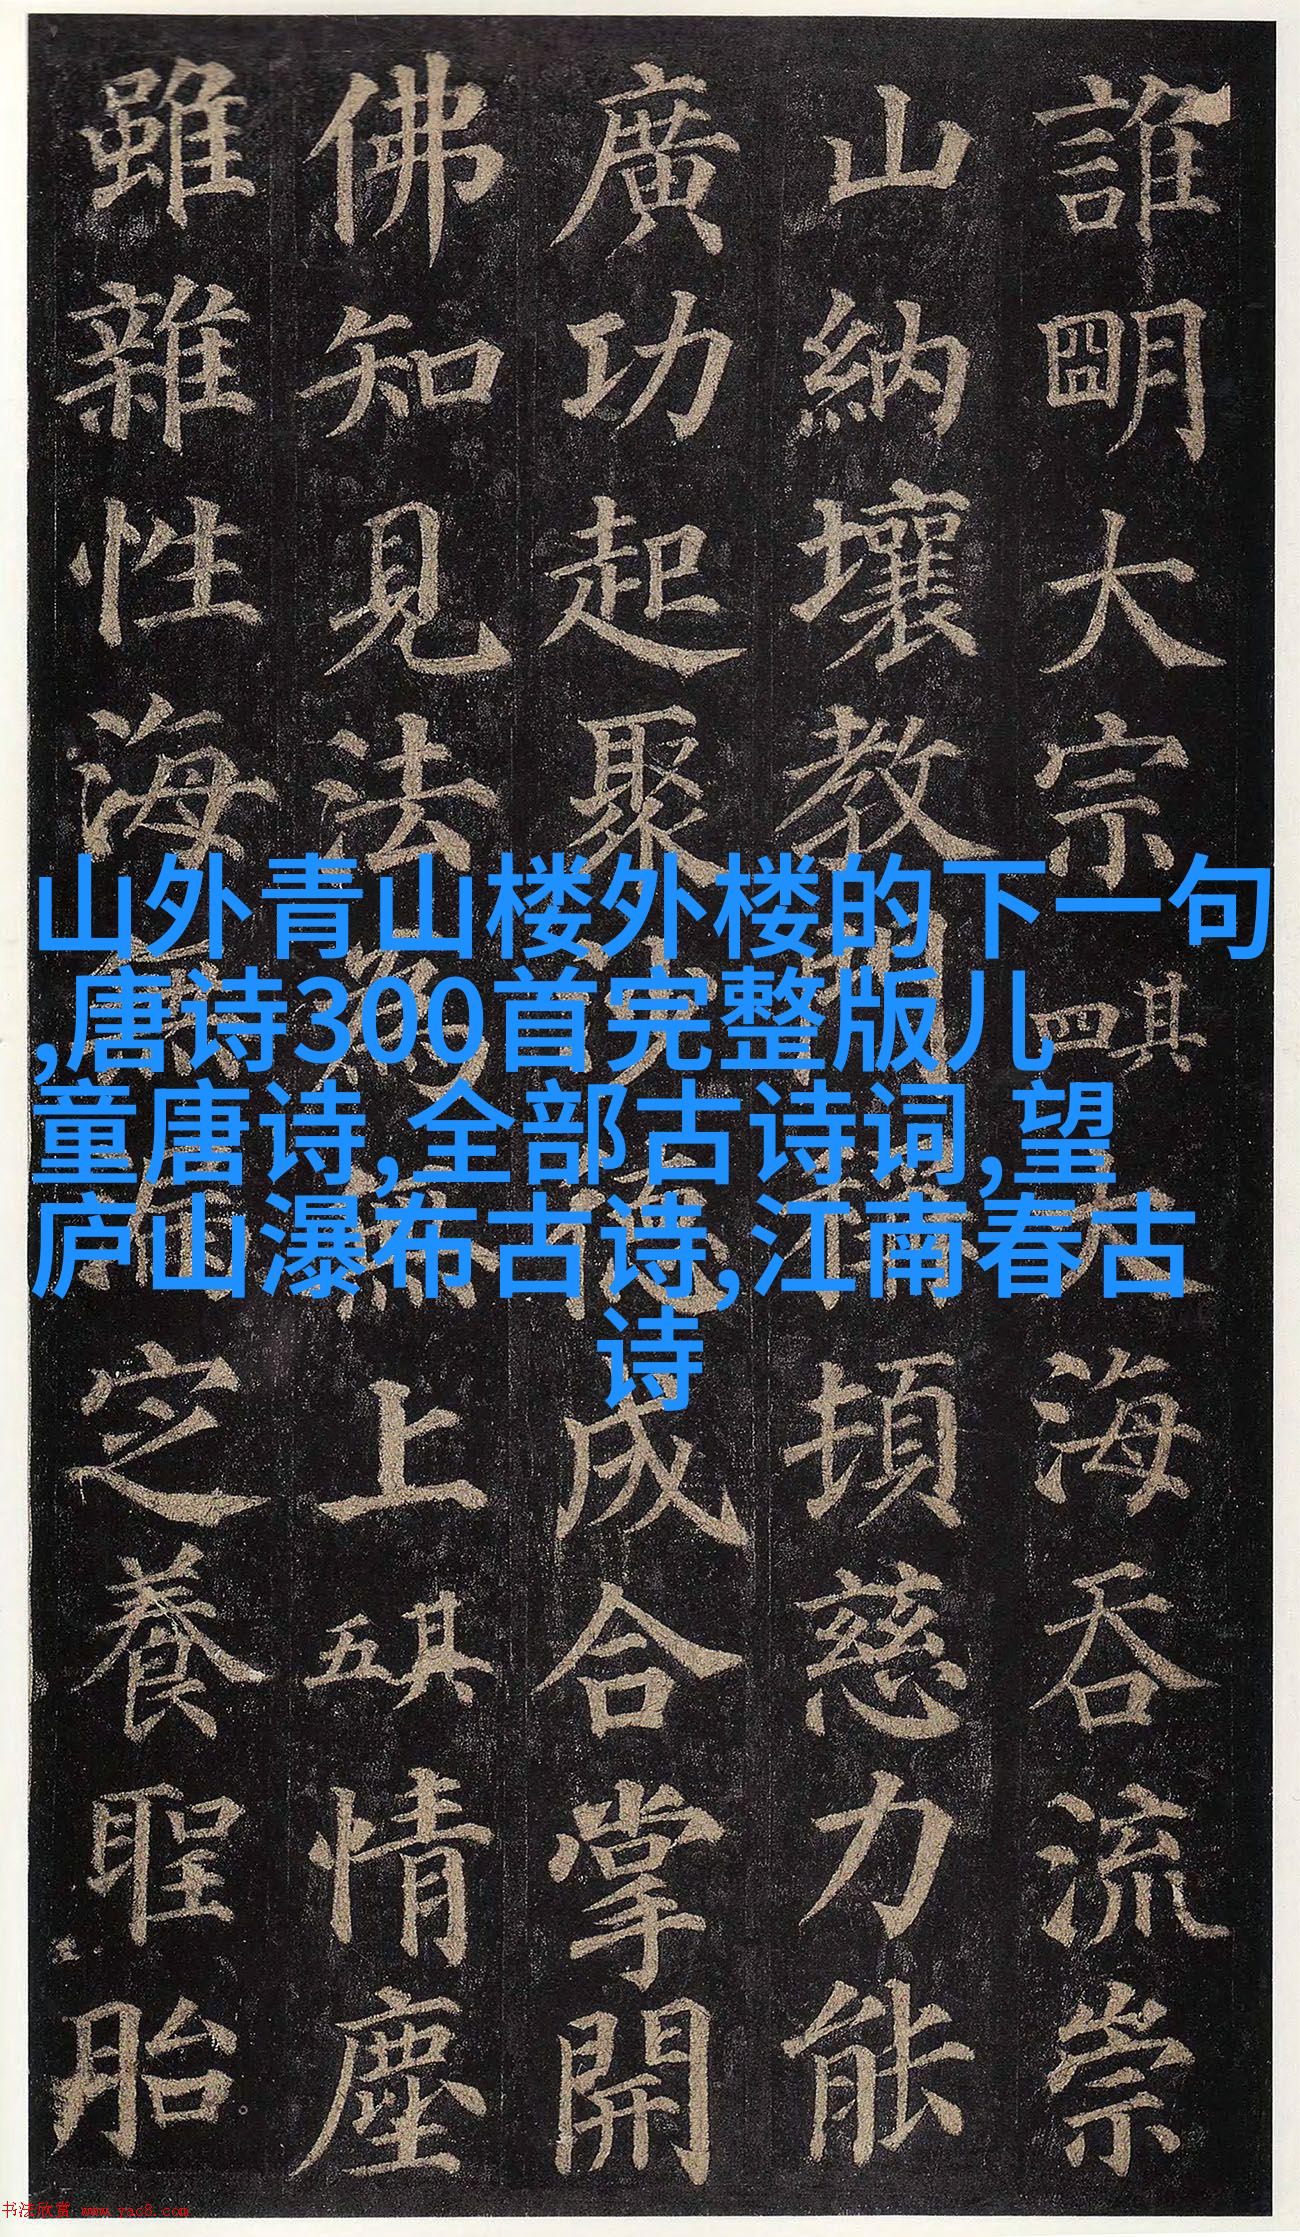 誰明大宗其四大海吞流崇
山納壤教門稱頓慈力能
廣功起聚沙德成合掌開
佛知見法為無上其五情塵
雖雜性海無漏定養聖胎
山外青山楼外楼的下一句
,唐诗300首完整版儿
童唐诗,全部古诗词,望
庐山瀑布古诗,江南春古
诗
书法欣赏 www.yac8.com